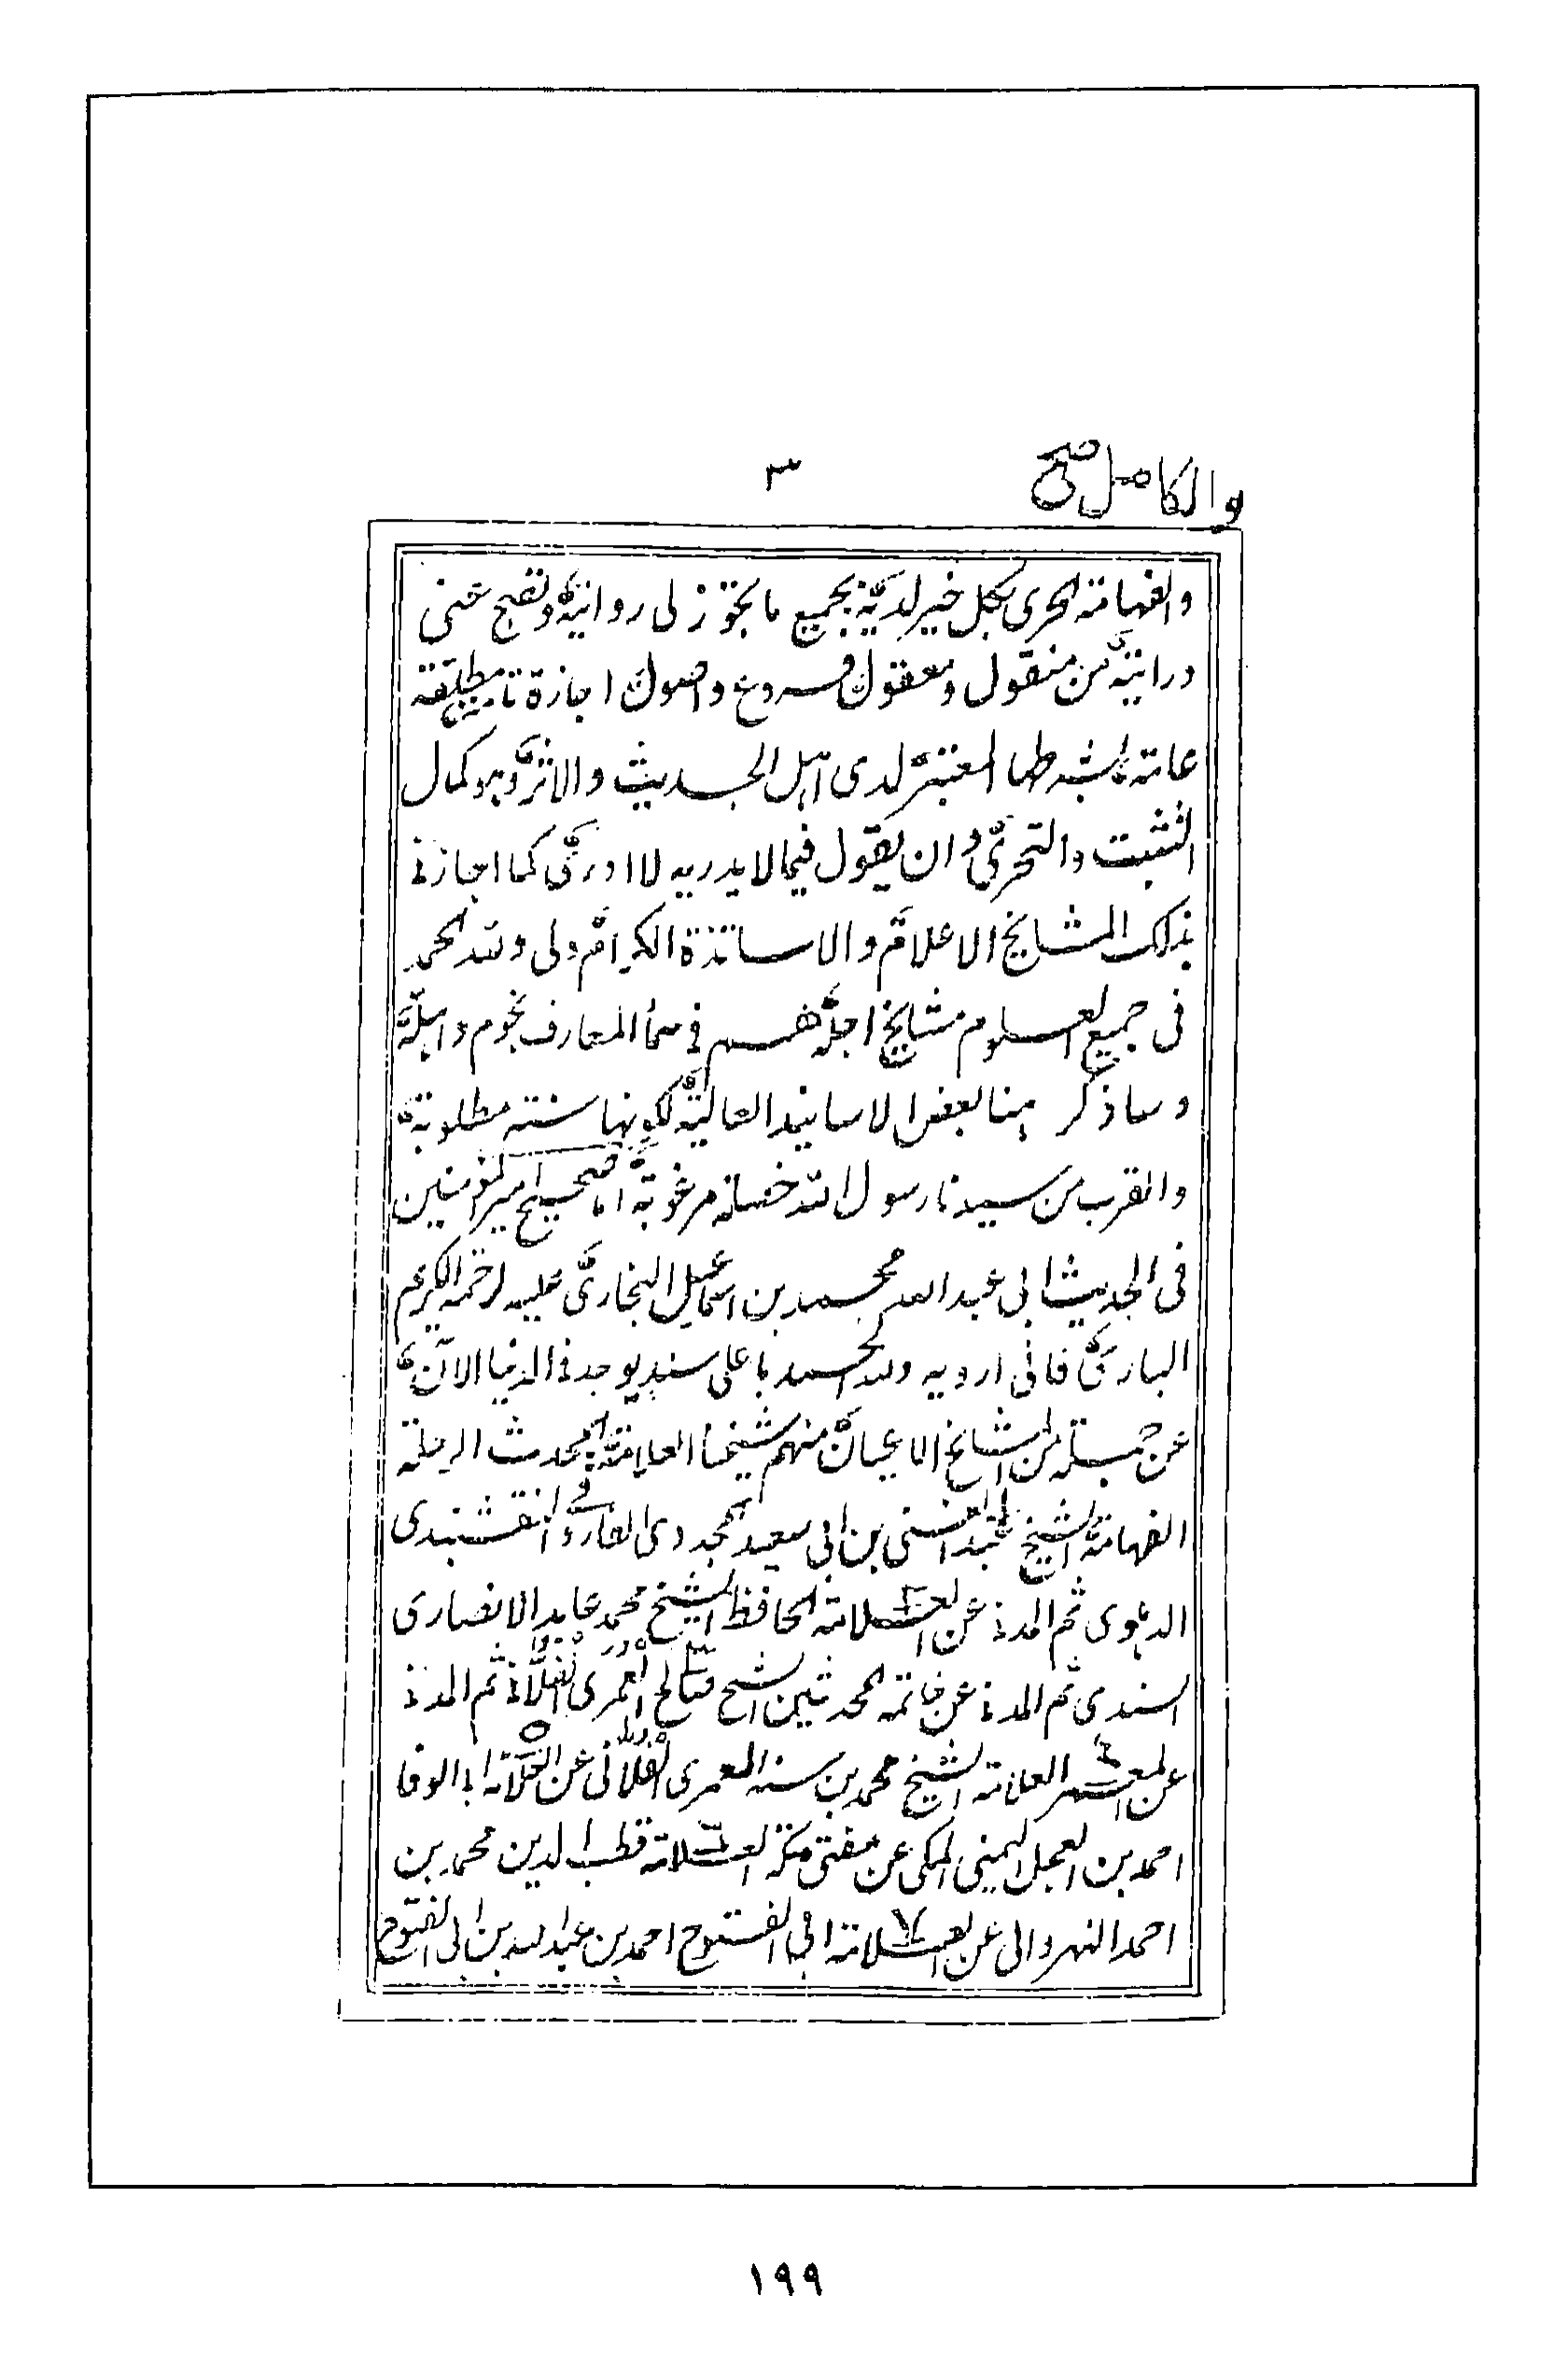 والكامل صح
٣
والفهامة الحرى بكل خير لديه بجميع ما يجوز لى روايته وتصح عنى
درايته من منقول ومعقول وفروع واصول اجازة تامة مطلقة
عامة بشرطها المعتبر لدى اهل الحديث والاثر وهو كمال
التثبت والتحرى وان يقول فيما لا يدريه لا ادرى كما اجازنى
بذلك المشايخ الاعلام والاساتذة الكرام ولى ولله الحمد
فى جميع العلوم مشايخ اجلة هم فى سماء المعارف نجوم واهلة
وساذكر هنا بعض الاسانيد العالية لكونها سنة مطلوبة
والقرب من سيدنا رسول الله خصلة مرغوبة اما صحيح امير المؤمنين
فى الحديث ابى عبد الله محمد بن اسماعيل البخارى عليه رحمة الكريم
البارى فانى ارويه ولله الحمد باعلى سند يوجد فى الدنيا الآن
عن جملة من المشايخ الاعيان منهم شيخنا العلامة المحدث الرحلة
الفهامة الشيخ عبد الغنى بن ابى سعيد المجددى الفاروقى النقشبندى
الدہلوى ثم المدنى عن العلامة الحافظ الشيخ محمد عابد الانصارى
السندى ثم المدنى عن خاتمة المحدثين الشيخ صالح العمرى الفلانى ثم المدنى
عن المعمر العلامة الشيخ محمد بن سنه العمرى الفلانى عن العلامة ابى الوفا
احمد بن العجل اليمنى المكى عن مفتى مكة العلامة قطب الدين محمد بن
احمد النهروالى عن العلامة ابى الفتوح احمد بن عبد الله بن ابى الفتوح
١٩٩